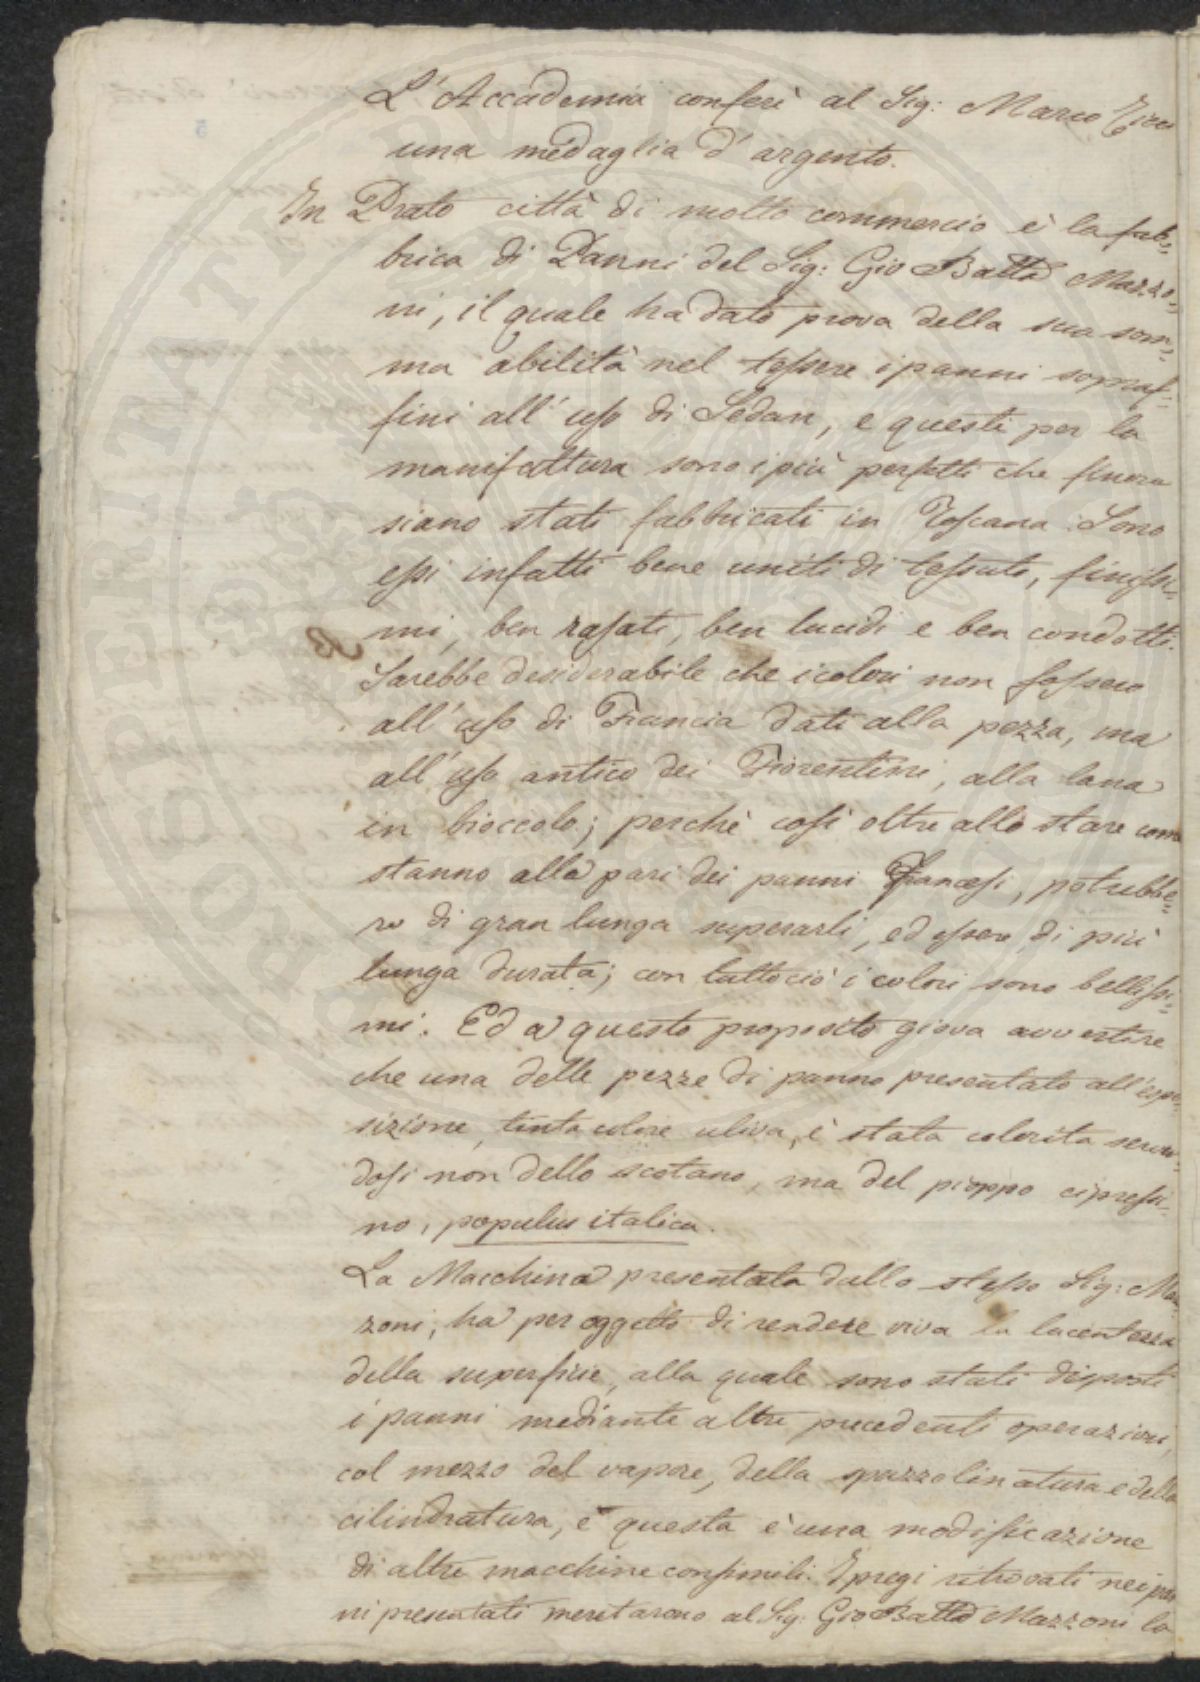 L'Accademia conferì al Sig: Marco
una medaglia d'argento.
In Prato città di molto commercio è la fab=
brica di Panni del Sig: Gio Batta Mazzo=
ni, il quale ha dato prova della sua som=
ma abilità nel tessere i panni sopraf=
fini all'uso di Sedan, e questi per la
manifattura sono i più perfetti che finora
siano stati fabbricati in Toscana. Sono
essi infatti bene uniti di tessuto, finissi=
mi, ben rasati, ben lucidi e ben condotti.
Sarebbe desiderabile che i colori non fossero
all'uso di Francia dati alla pezza, ma
all'uso antico dei Fiorentini, alla lana
in bioccolo; perchè così oltre allo stare come
stanno alla pari dei panni Francesi, potrebbe=
ro di gran lunga superarli, ed essere di più
lunga durata; con tuttociò i colori sono bellissi=
mi. Ed a questo proposito giova avvertire
che una delle pezze di panno presentato all'espo=
sizione, tinta colore uliva, è stata colorita serven=
dosi non dello scotano, ma del pioppo cipressi=
no, populus italica.
La Macchina presentata dallo stesso Sig: Maz=
zoni, ha per oggetto di rendere viva la lucentezza
della superficie, alla quale sono stati disposti
i panni mediante altre precedenti operazioni,
col mezzo del vapore, della spazzolinatura e della
cilindratura, e questa è una modificazione
di altre macchine consimili. I pregi ritrovati nei pan
ni presentati meritarono al Sig: Gio Batta Mazzoni la
PROSPERITATI PUBLICAE